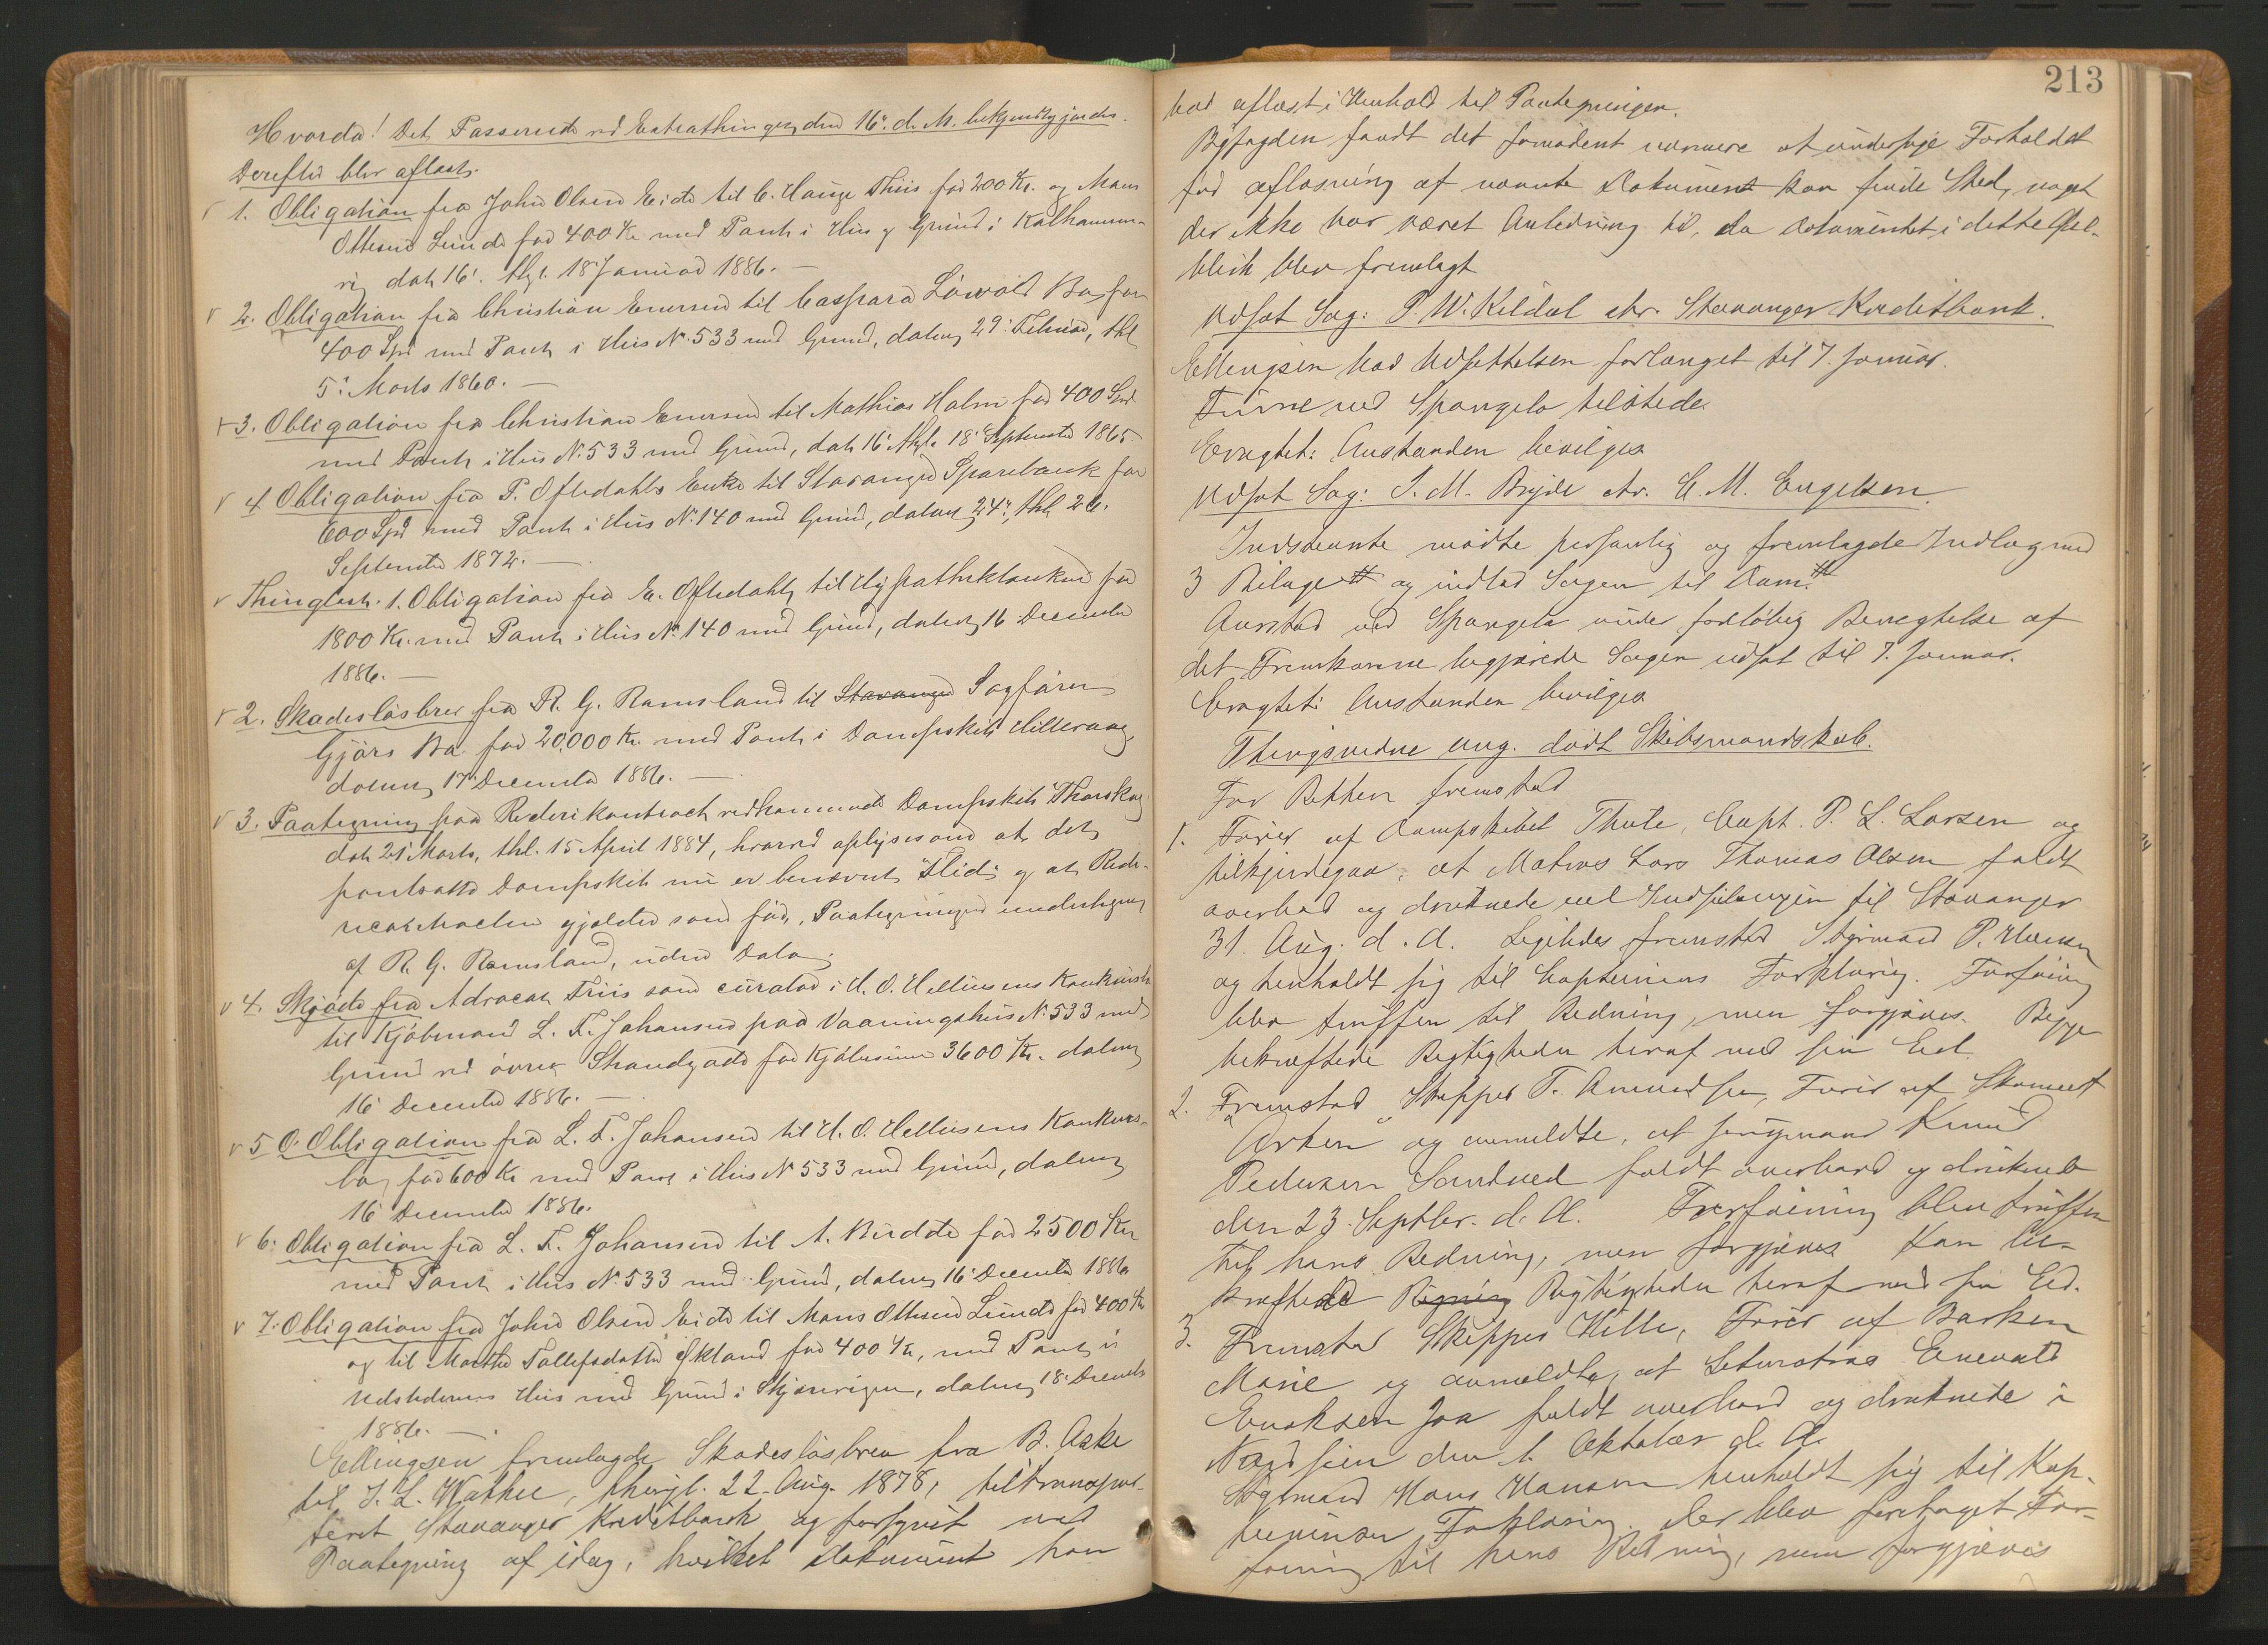 Hvorda! Det Passerede ved Extrathinget den 16' d. M. bekjendtgjordes.
Derefter blev aflæst:
1. Obligation fra John Olsen Eide til C. Hauge Thiis for 200 Kr. og Mons
Ottesen Lunde for 400 Kr med Pant i Hus og Grund i Kalhammer-
vig dat. 16' thgl. 18' Januar 1886. —
2. Obligation fra Christian Enersen til Caspara Löwold Ba for
400 Spd med Pant i Hus № 533 med Grund, dateret 29' Februar, thl
5' Marts 1860. —
3. Obligation fra Christian Enersen til Mathias Holm for 400 Spd
med Pant i Hus № 533 med Grund, dat. 16' thgl. 18' September 1865
4 Obligation fra P. Oftedahls Enke til Stavanger Sparebank for
600 Spd med Pant i Hus № 140 med Grund, dateret 24', thl 26.
September 1872. —
Thinglæst. 1. Obligation fra E. Oftedahl til Hypothekbanken for
1800 Kr. med Pant i Hus № 140 med Grund, dateret 16 December
1886. —
2. Skadeslösbrev fra R. G. Ramsland til Stavanger Sagfører
Gjörs Ba for 20,000 Kr. med Pant i Dampskib Hilleraag
dateret 17' December 1886. —
3. Paategning paa Rederikontract vedkommende Dampskib "Thorskog"
dat 21' Marts, thl. 15 April 1884, hvorved oplyses om at det
pantsatte Dampskib nu er benævnt "Flid" og at Rede-
riet gjelder som för, Paategningen undertegnet
af R. G. Ramsland, uden Dato.
4. Skjöde fra Advocat Friis som curator i H. O. Helliesens Konkursbo
til Kjöbmand L. F. Johansen paa Vaaningshus № 533 med
Grund ved övre Strandgade for Kjöbesum 3600 Kr. dateret
16' December 1886. —
5 O. Obligation fra L. F. Johansen til H. O. Helliesens Konkurs-
bo for 600 Kr med Pant i Hus № 533 med Grund, dateret
16' December 1886.
6. Obligation fra L. F. Johansen til A. Budde for 2500 Kr
med Pant i Hus № 533 med Grund, dateret 16' December 1886
7. Obligation fra John Olsen Eide til Mons Ottesen Lunde for 400 Kr
og til Marthe Tollefsdatter Ekland for 400 Kr, med Pant i
Udstederens Hus med Grund i Skjærvigen, dateret 18' December
1886. —
Ellingsen fremlagde Skadeslösbrev fra B. Aske
til J. L. Wathne, thingl. 22. Aug. 1878, tiltranspor-
teret Stavanger Kreditbank og forsynet med
Paategning af idag, hvilket Dokument han
213
bad aflæst i Henhold til Paategningen.
Byfogden fandt det fornødent nærmere at undersøge Forholdet
før aflæsning af nævnte Dokument kan finde Sted, noget
der ikke har været Anledning til, da Dokumentet i dette Øie-
blik blev fremlagt
Udsat Sag: P. W. Kildal ctr. Stavanger Kreditbank.
Ellingsen bad Udsættelsen forlænget til 7. Januar.
Firme ved Spangelo tilstede.
Eragtet: Anstanden bevilges
Udsat Sag: J. M. Bryde ctr. C. M. Engelsen.
Indstevnte mødte personlig og fremlagde Indlæg med
3 Bilage # og indlod Sagen til Dom. #
Aurstad ved Spangelo under foreløbig Benegtelse af
det Fremkomne begjærede Sagen udsat til 7. Januar.
Eragtet: Anstanden bevilges
Thingsvidne ang. dødt Skibsmandskab.
For Retten fremstod
1. Fører af Dampskibet Thule, Capt. P. L. Larsen og
tilkjendegav, at Matros Lars Thomas Olsen faldt
overbord og druknede ved Indseilingen til Stavanger
31. Aug. d. A. Ligeledes fremstod Styrmand P. Hansen
og henholdt sig til Capteinens Forklaring. Forføining
blev truffen til Redning, men forgjæves. Begge
bekræftede Rigtigheden heraf med sin Eed.
2. Fremstod Skipper T. Amundsen, Fører af Skonnert
"Arken og anmeldte, at Jungmand Knud
Pedersen Sandved faldt overbord og druknede
den 23. Septbr. d. A. Forføining blev truffen
til hans Redning, men forgjæves Han be-
kræftede Rigtig Rigtigheden heraf med sin Ed.
3. Fremstod Skipper Hille, Fører af Barken
Marie og anmeldte, at Letmatros Enevald
Enoksen Joa faldt overbord og druknede i
Nordsjøen den 1. Oktober d. A.
Styrmand Hans Hansen henholdt sig til Kap-
teinens Forklaring. Der blev foretaget For-
føining til hans Redning, men forgjæves